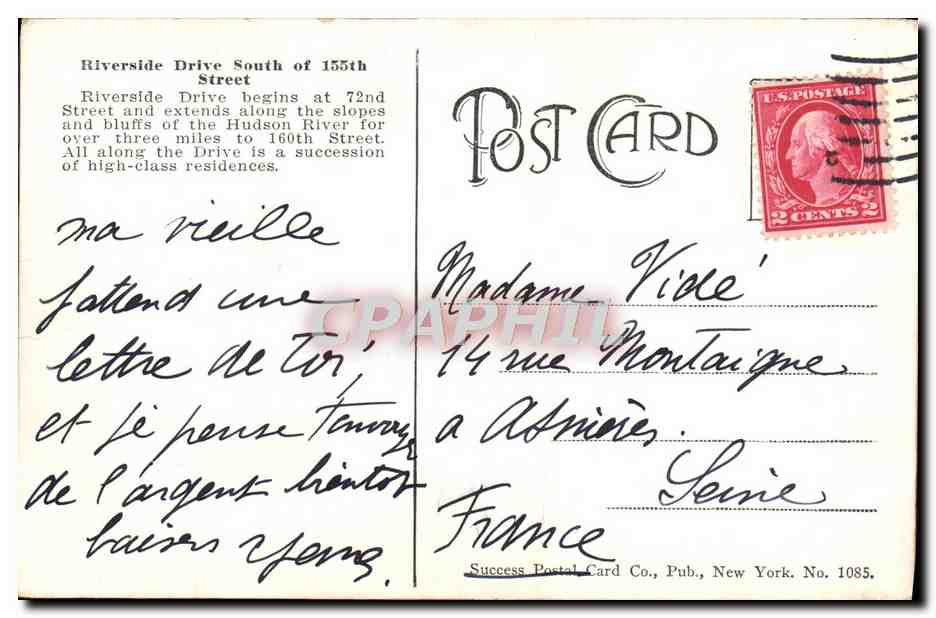 Riverside Drive South of 155th
Street
Riverside Drive begins at 72nd
Street and extends along the slopes
and bluffs of the Hudson River for
over three miles to 160th Street.
All along the Drive is a succession
of high-class residences.
ma vieille
j'attend une
lettre de toi,
et je pense t'envoyer
de l'argent bientot
baisers
POST CARD
U.S. POSTAGE
2 CENTS 2
Madame Vidé
14 rue Montaigne
a Asnières.
Seine
France
Success Postal Card Co., Pub., New York. No. 1085.
CPAPHIL